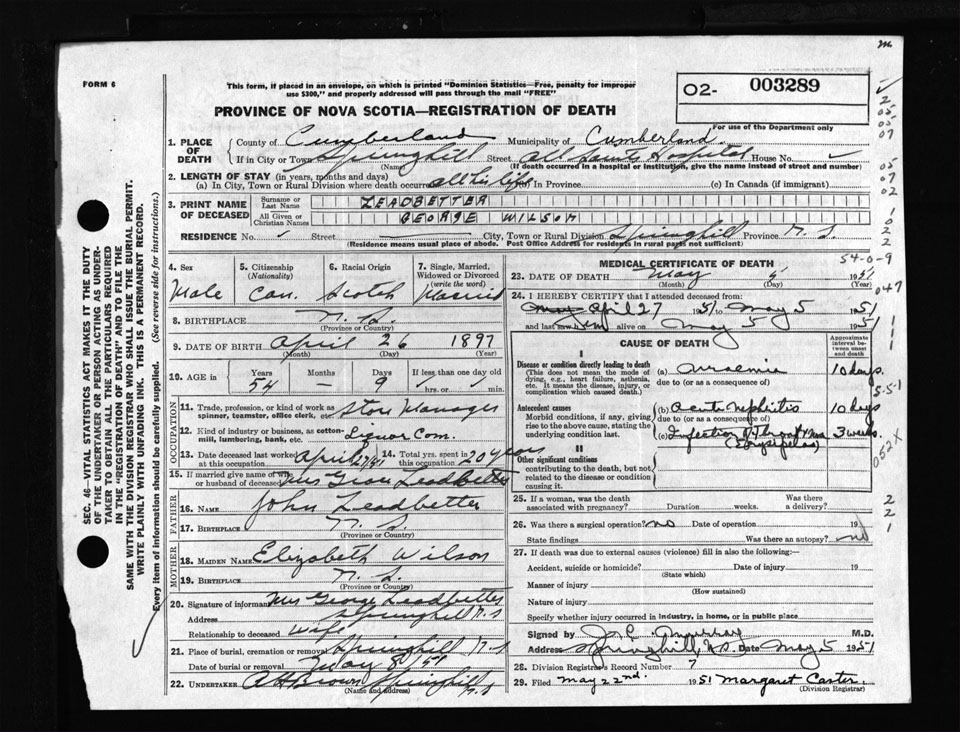 FORM 6
This form, if placed in an envelope, on which is printed "Dominion Statistics—Free, penalty for improper
use $300," and properly addressed will pass through the mail "FREE"
PROVINCE OF NOVA SCOTIA—REGISTRATION OF DEATH
02- 003289
For use of the Department only
1. PLACE OF DEATH
County of Cumberland Municipality of Cumberland
If in City or Town Springhill Street All Saints Hospital House No.
(Name) (If death occurred in a hospital or institution, give the name instead of street and number)
2. LENGTH OF STAY (in years, months and days)
(a) In City, Town or Rural Division where death occurred all his life (b) In Province (c) In Canada (if immigrant)
3. PRINT NAME OF DECEASED
Surname or Last Name LEADBETTER
All Given or Christian Names GEORGE WILSON
RESIDENCE No. Street City, Town or Rural Division Springhill Province N.S.
(Residence means usual place of abode. Post Office Address for residents in rural parts not sufficient)
4. Sex Male
5. Citizenship (Nationality) Can.
6. Racial Origin Scotch
7. Single, Married, Widowed or Divorced (write the word) Married
8. BIRTHPLACE N.S.
(Province or Country)
9. DATE OF BIRTH April 26 1897
(Month) (Day) (Year)
10. AGE in Years 54 Months — Days 9 If less than one day old hrs. or min.
OCCUPATION
11. Trade, profession, or kind of work as spinner, teamster, office clerk, etc. Store Manager
12. Kind of industry or business, as cotton-mill, lumbering, bank, etc. Liquor Com.
13. Date deceased last worked at this occupation April 27/51 14. Total yrs. spent in this occupation 20 years
15. If married give name of wife or husband of deceased Mrs Geo Leadbetter
FATHER
16. NAME John Leadbetter
17. BIRTHPLACE N.S.
(Province or Country)
MOTHER
18. MAIDEN NAME Elizabeth Wilson
19. BIRTHPLACE N.S.
(Province or Country)
20. Signature of informant Mrs George Leadbetter
Address Springhill N.S
Relationship to deceased Wife
21. Place of burial, cremation or removal Springhill N.S
Date of burial or removal May 8/51
22. UNDERTAKER A H Brown Springhill N.S
(Name and address)
MEDICAL CERTIFICATE OF DEATH
23. DATE OF DEATH May 5 1951
(Month) (Day) (Year)
24. I HEREBY CERTIFY that I attended deceased from:
May April 27 1951 to May 5 1951
and last saw him alive on May 5 1951
CAUSE OF DEATH
Approximate interval between onset and death
I
Disease or condition directly leading to death
(This does not mean the mode of dying, e.g., heart failure, asthenia, etc. It means the disease, injury, or complication which caused death.)
(a) Uraemia 10 days.
due to (or as a consequence of)
Antecedent causes
Morbid conditions, if any, giving rise to the above cause, stating the underlying condition last.
(b) Acute Nephritis 10 days
due to (or as a consequence of)
(c) Infection of Throat (Erysipelas) 3 weeks.
II
Other significant conditions
contributing to the death, but not related to the disease or condition causing it
25. If a woman, was the death associated with pregnancy? Duration weeks. Was there a delivery?
26. Was there a surgical operation? no Date of operation 19
State findings Was there an autopsy? no
27. If death was due to external causes (violence) fill in also the following:—
Accident, suicide or homicide? Date of injury 19
(State which)
Manner of injury
(How sustained)
Nature of injury
Specify whether injury occurred in industry, in home, or in public place
Signed by J. C. M.D.
Address Springhill, N.S. Date May 5 1951
28. Division Registrar's Record Number 7
29. Filed May 22nd. 1951 Margaret Carter.
(Division Registrar)
SEC. 46—VITAL STATISTICS ACT MAKES IT THE DUTY
OF THE UNDERTAKER OR PERSON ACTING AS UNDER-
TAKER TO OBTAIN ALL THE PARTICULARS REQUIRED
IN THE "REGISTRATION OF DEATH" AND TO FILE THE
SAME WITH THE DIVISION REGISTRAR WHO SHALL ISSUE THE BURIAL PERMIT.
WRITE PLAINLY WITH UNFADING INK. THIS IS A PERMANENT RECORD.
Every item of information should be carefully supplied. (See reverse side for instructions.)
2
05
05
07
05
07
02
1
0
2
2
54-0-9
047
1
1
1
5-5-1
052X
2
2
1